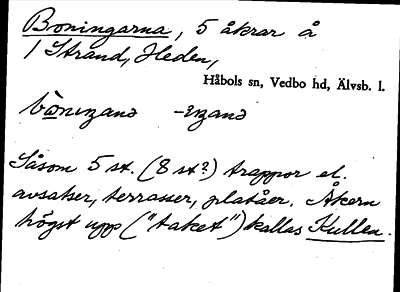 Boningarna, 5 åkrar å
1 Strand, Heden,
Håbols sn, Vedbo hd, Älvsb. l.
Såsom 5 st. (8 st?) trappor el.
avsatser, terrasser, platåer. Åkern
högst upp ("taket") kallas Kullen.